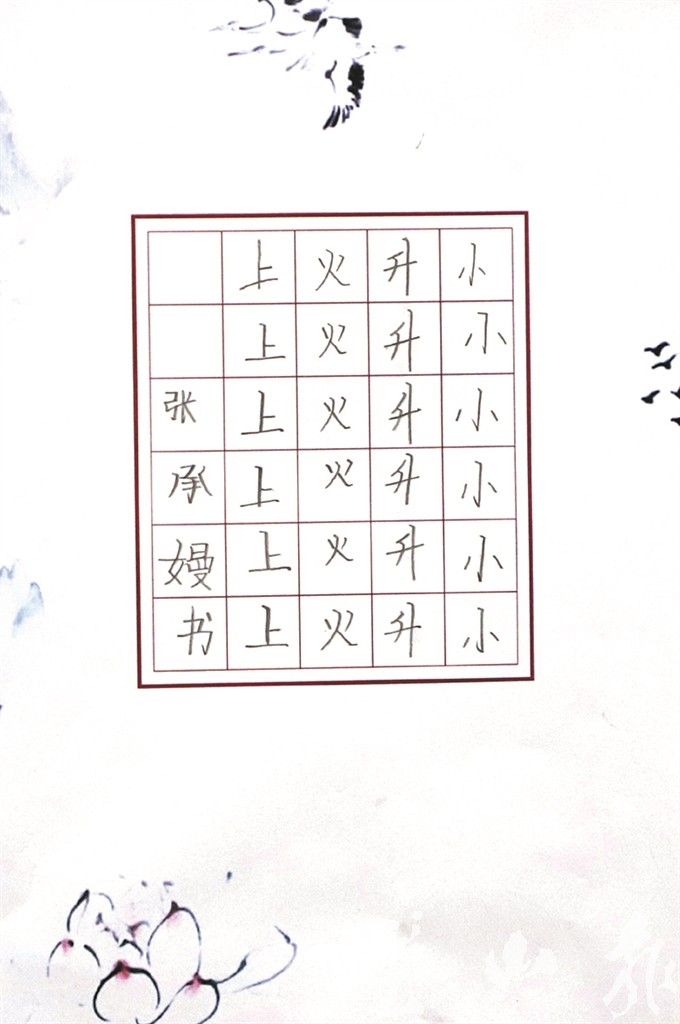 小小小小小小
升升升升升升
火火火火火火
上上上上上上
张承嫚书